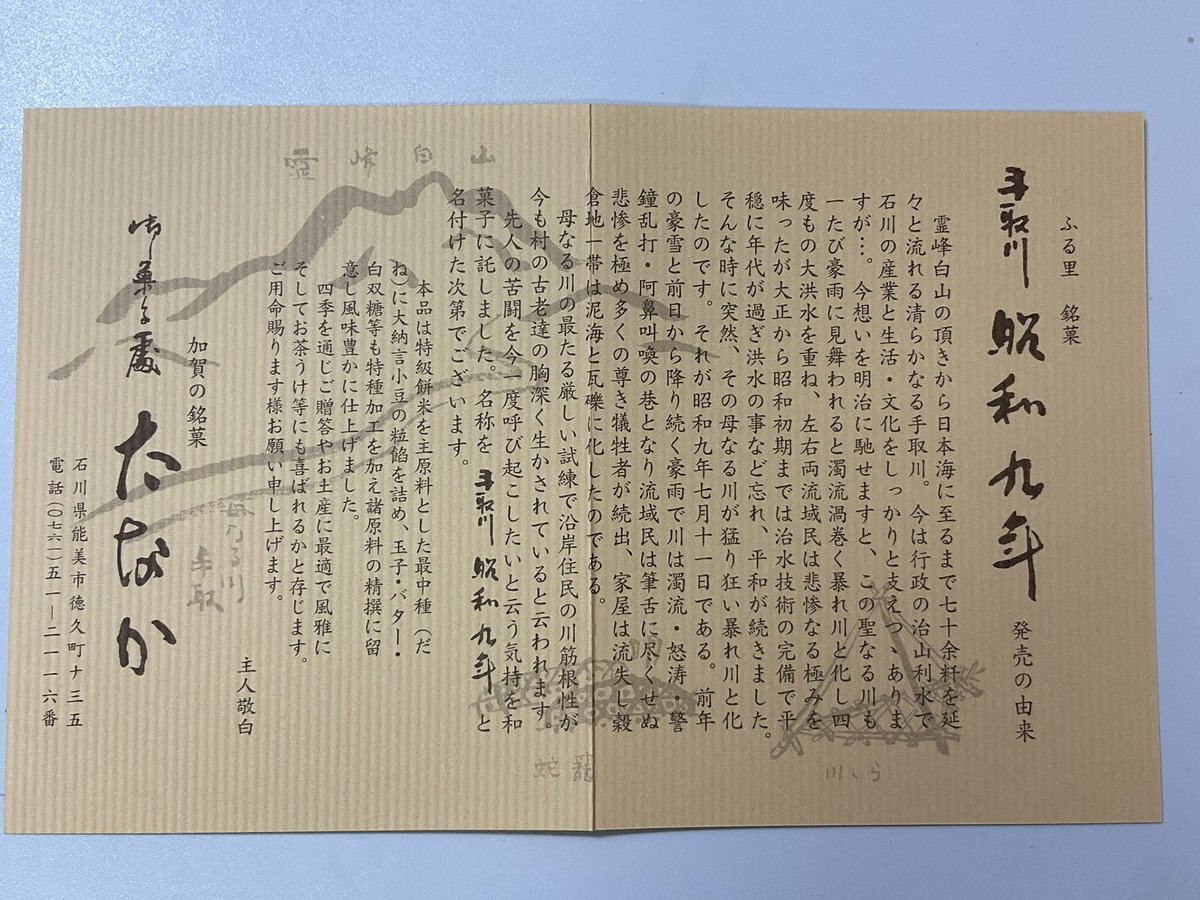 ふる里　銘菓
手取川 昭和九年 発売の由来
霊峰白山の頂きから日本海に至るまで七十余粁を延
々と流れる清らかなる手取川。今は行政の治山利水で
石川の産業と生活・文化をしっかりと支えつゝありま
すが…。今想いを明治に馳せますと、この聖なる川も
一たび豪雨に見舞われると濁流渦巻く暴れ川と化し四
度もの大洪水を重ね、左右両流域民は悲惨なる極みを
味ったが大正から昭和初期までは治水技術の完備で平
穏に年代が過ぎ洪水の事など忘れ、平和が続きました。
そんな時に突然、その母なる川が猛り狂い暴れ川と化
したのです。それが昭和九年七月十一日である。前年
の豪雪と前日から降り続く豪雨で川は濁流・怒涛・警
鐘乱打・阿鼻叫喚の巷となり流域民は筆舌に尽くせぬ
悲惨を極め多くの尊き犠牲者が続出、家屋は流失し穀
倉地一帯は泥海と瓦礫に化したのである。
母なる川の最たる厳しい試練で沿岸住民の川筋根性が
今も村の古老達の胸深く生かされていると云われます。
先人の苦闘を今一度呼び起こしたいと云う気持を和
菓子に託しました。名称を 手取川 昭和九年 と
名付けた次第でございます。
本品は特級餅米を主原料とした最中種（だ
ね）に大納言小豆の粒餡を詰め、玉子・バター・
白双糖等も特種加工を加え諸原料の精撰に留
意し風味豊かに仕上げました。
四季を通じご贈答やお土産に最適で風雅に
そしてお茶うけ等にも喜ばれるかと存じます。
ご用命賜ります様お願い申し上げます。
主人敬白
加賀の銘菓
御菓子處 たなか
石川県能美市徳久町ナ十三五
電話（〇七六一）五一―二一一六番
霊峰白山
母なる川
手取
蛇籠
川くら